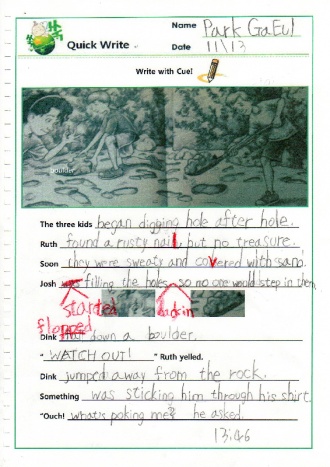 Quick Write
Name Park GaEul
Date 11\13
Write with Cue!
boulder
The three kids began digging hole after hole.
Ruth found a rusty nail, but no treasure.
Soon they were sweaty and covered with sand.
Josh was filling the holes, so no one would step in them
started back in
flopped
Dink that down a boulder.
"WATCH OUT!" Ruth yelled.
Dink jumped away from the rock.
Something was sticking him through his shirt
"Ouch! what's poking me? he asked.
13:46